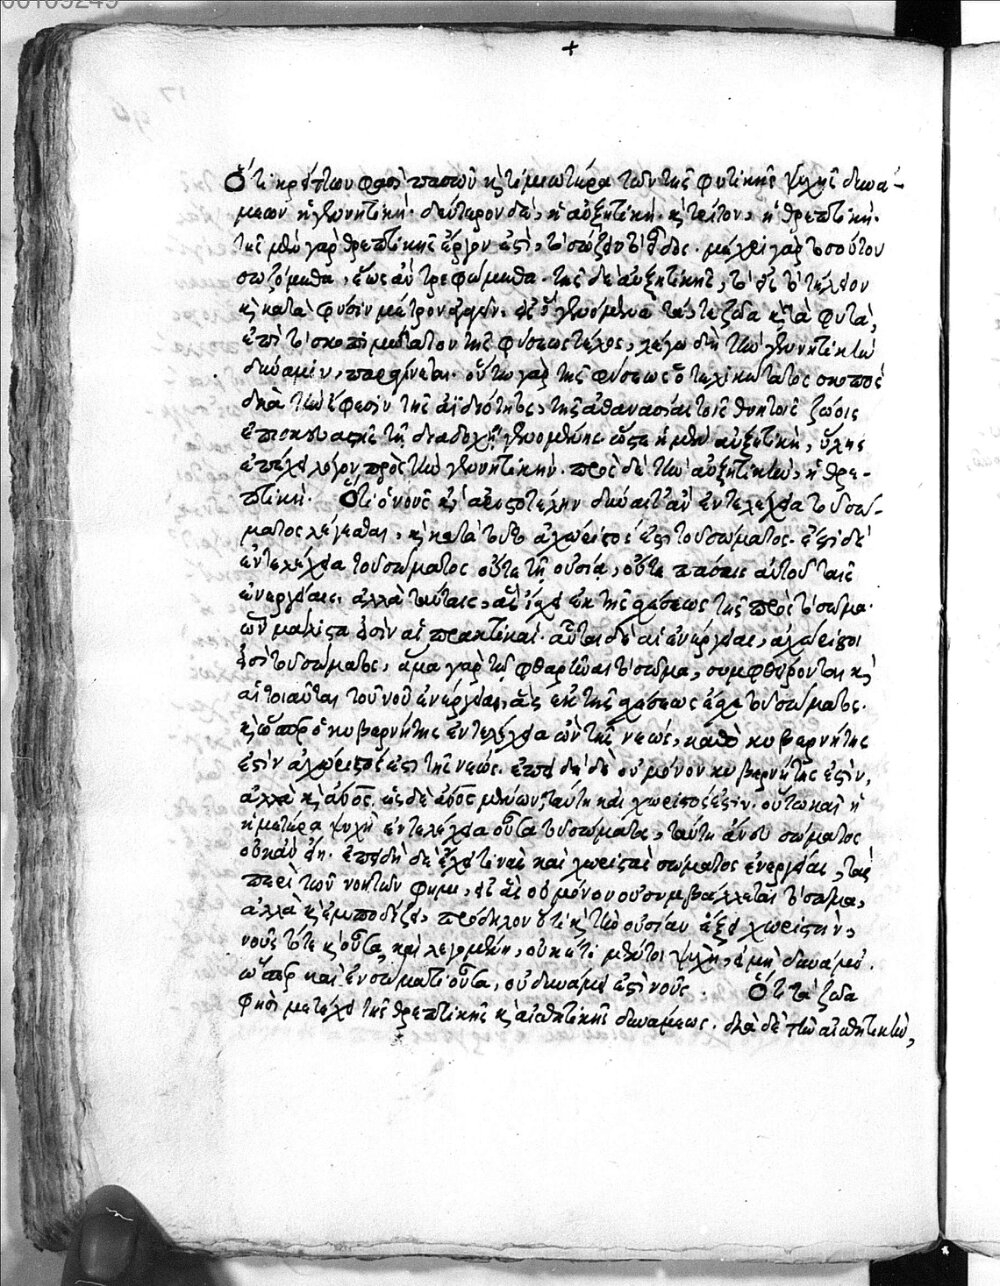 Ὅτι κρείττων φασὶ πασῶν καὶ τιμιωτέρα τῶν τῆς φυτικῆς ψυχῆς δυνά-
μεων ἡ γεννητική· δεύτερον δὲ, ἡ αὐξητική· καὶ τρίτον, ἡ θρεπτική·
τῆς μὲν γὰρ θρεπτικῆς ἔργον ἐστὶ, τὸ σώζειν τὸ εἶδος· μέχρι γὰρ τοσούτου
σωζόμεθα, ἕως ἂν τρεφώμεθα· τῆς δὲ αὐξητικῆς, τὸ εἰς τὸ τέλειον
καὶ κατὰ φύσιν μέτρον ἄγειν· εἰς ὃ γενόμενα τά τε ζῶα καὶ τὰ φυτὰ,
ἐπὶ τὸ σκοπιμώτατον τῆς φύσεως τέλος, λέγω δὴ τὴν γεννητικὴν
δύναμιν, παραγίνεται· οὗτος γὰρ τῆς φύσεως ὁ τελικώτατος σκοπὸς
διὰ τὴν ἔφεσιν τῆς ἀϊδιότητος, τῆς ἀθανασίας τοῖς θνητοῖς ζώοις
ἐπισκευαστῆς τῇ διαδοχῇ γενομένης ὥστε ἡ μὲν αὐξητικὴ, ὕλης
ἐπέχει λόγον πρὸς τὴν γεννητικήν· πρὸς δὲ τὴν αὐξητικὴν, ἡ θρε-
πτική· Ὅτι ὁ νοῦς κατ' ἀριστοτέλην δύναιτ' ἂν ἐντελέχεια τοῦ σώ-
ματος λέγεσθαι, καὶ κατὰ τοῦτο ἀχώριστός ἐστι τοῦ σώματος· ἔστι δὲ
ἐντελέχεια τοῦ σώματος οὔτε τῇ οὐσία, οὔτε πάσαις αὐτοῦ ταῖς
ἐνεργείαις, ἀλλὰ ταύταις, ἃς ἔχει ἐκ τῆς σχέσεως τῆς πρὸς τὸ σῶμα·
ὧν μάλιστα εἰσὶν αἱ πρακτικαί· αὗται δὲ αἱ ἐνέργειαι, ἀχώριστοι
εἰσὶ τοῦ σώματος, ἅμα γὰρ τῷ φθαρῆναι τὸ σῶμα, συμφθείρονται καὶ
αἱ τοιαῦται τοῦ νοῦ ἐνέργειαι, ἃς ἐκ τῆς σχέσεως ἔσχε τοῦ σώματος·
καὶ ὥσπερ ὁ κυβερνήτης ἐντελέχεια ὢν τῆς νεὼς, καθὸ κυβερνήτης
ἐστὶν ἀχώριστός ἐστι τῆς νεώς· ἐπειδὴ δὲ οὐ μόνον κυβερνήτης ἐστὶν,
ἀλλὰ καὶ ἄνος, ὡς δὲ ἄνος μένων, ταύτη καὶ χωριστός ἐστιν· οὕτω καὶ ἡ
ἡμετέρα ψυχὴ ἐντελέχεια οὖσα τοῦ σώματος, ταύτη ἄνευ σώματος
οὐκ ἂν εἴη· ἐπειδὴ δὲ ἔχει τινὰς καὶ χωριστὰς σώματος ἐνεργείας, τὰς
περὶ τῶν νοητῶν φημι, εἰς ἃς οὐ μόνον οὐ συμβάλλεται τὸ σῶμα,
ἀλλὰ καὶ ἐμποδίζει, πρόδηλον ὅτι καὶ τὴν οὐσίαν ἕξει χωριστὴν,
νοῦς τότε καὶ οὖσα, καὶ λεγομένη, οὐκέτι μέντοι ψυχὴ, εἰ μὴ δυνάμει·
ὥσπερ καὶ ἐν σώματι οὖσα, οὐ δυνάμει ἐστὶ νοῦς· Ὅτι τὰ ζῶα
φησὶ μετέχει τῆς θρεπτικῆς καὶ αἰσθητικῆς δυνάμεως· διὰ δὲ τὴν αἰσθητικὴν,